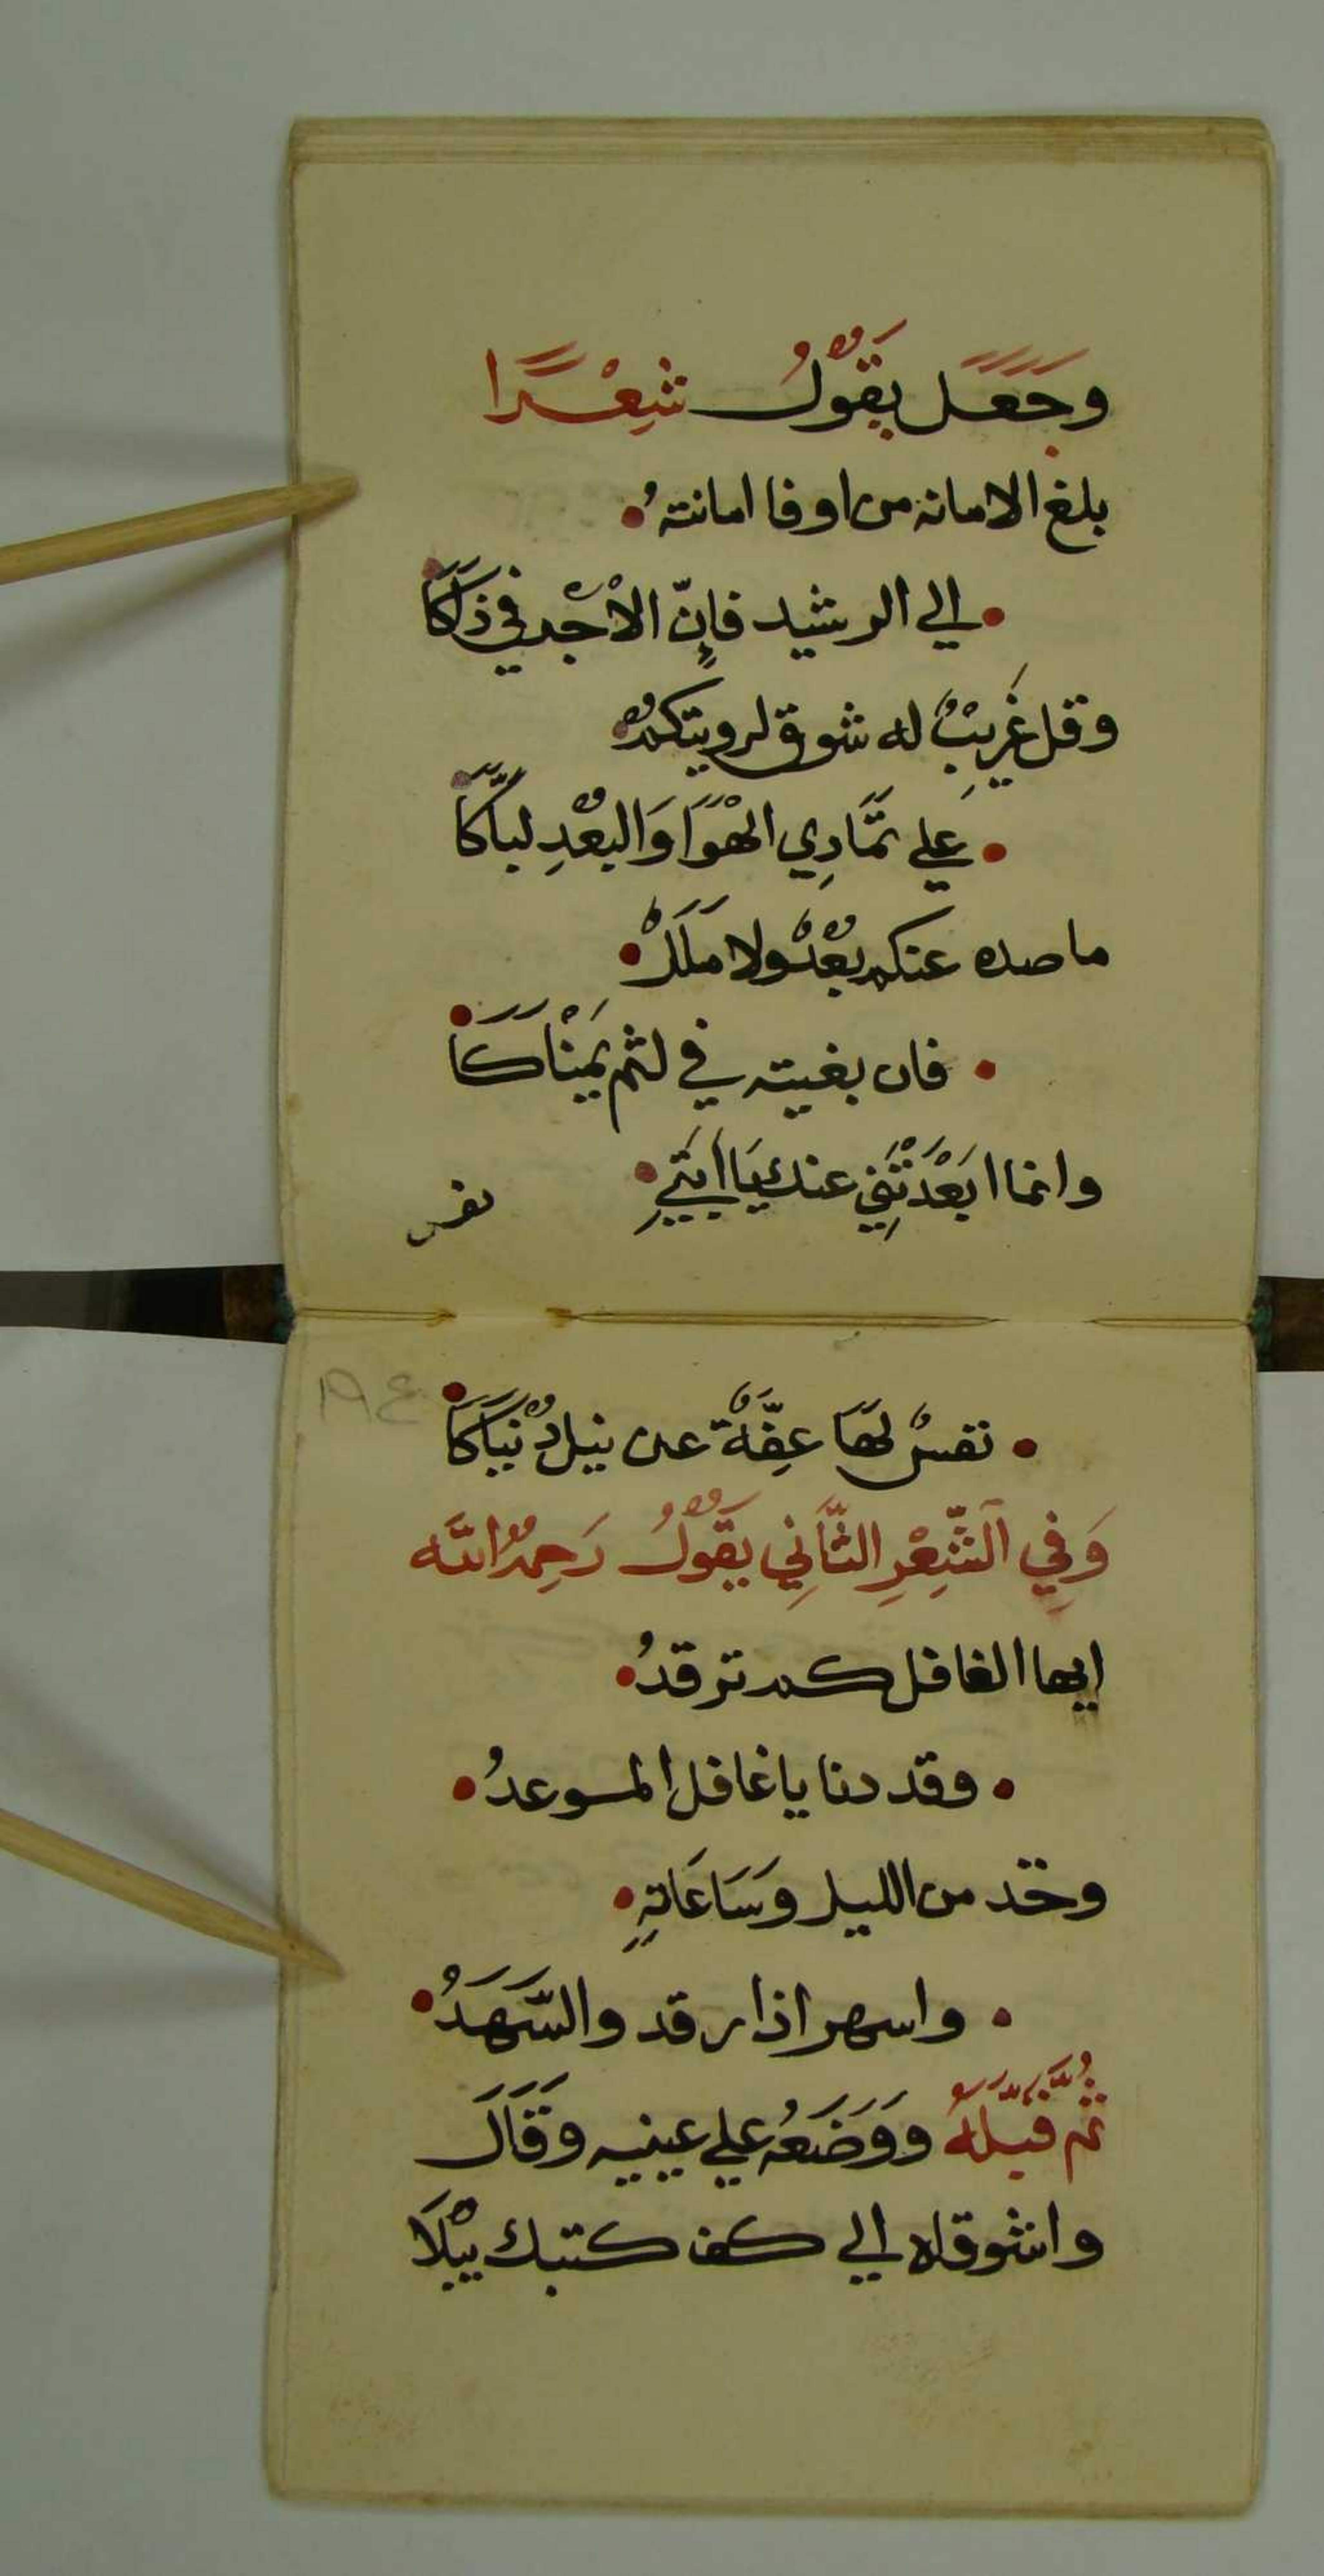 وَجَعَل يَقُوْلُ شِعْرًا
بلغ الامانه من اوفا امانتهُ
الي الرشيد فإنّ الأجْر في ذَاكَا
وقل غَرِيْبٌ له شوق لرويتكمْ
علي تمَّادِي الهْوَا وَالبعْدِ لباكَّا
ما صده عنكم بعْدٌ ولا ملَلْ
فان بغيته في لثم يَمنْاكَا
وانما ابَعْدَتْنِي عنك يَا ابَتيِ
نفس
نفسٌ لهَا عِفَّةْ عن نيل دُنْيَاكَا
وَفِي اَلشِّعْرِ الثَّانِي يَقُوْلُ رَحِمْهُ اللَه
ايها الغافل كم ترقدُ
وقد دنا يا غافل الموعدُ
وخد من الليل وَسَاعَاتهِ
واسهر اذا رقد والسَّهَدُ
ثُم قبَّلهُ وَوَضَعُه علي عينيه وَقَالَ
واشوقاه الي كف كتبك يبْلَا